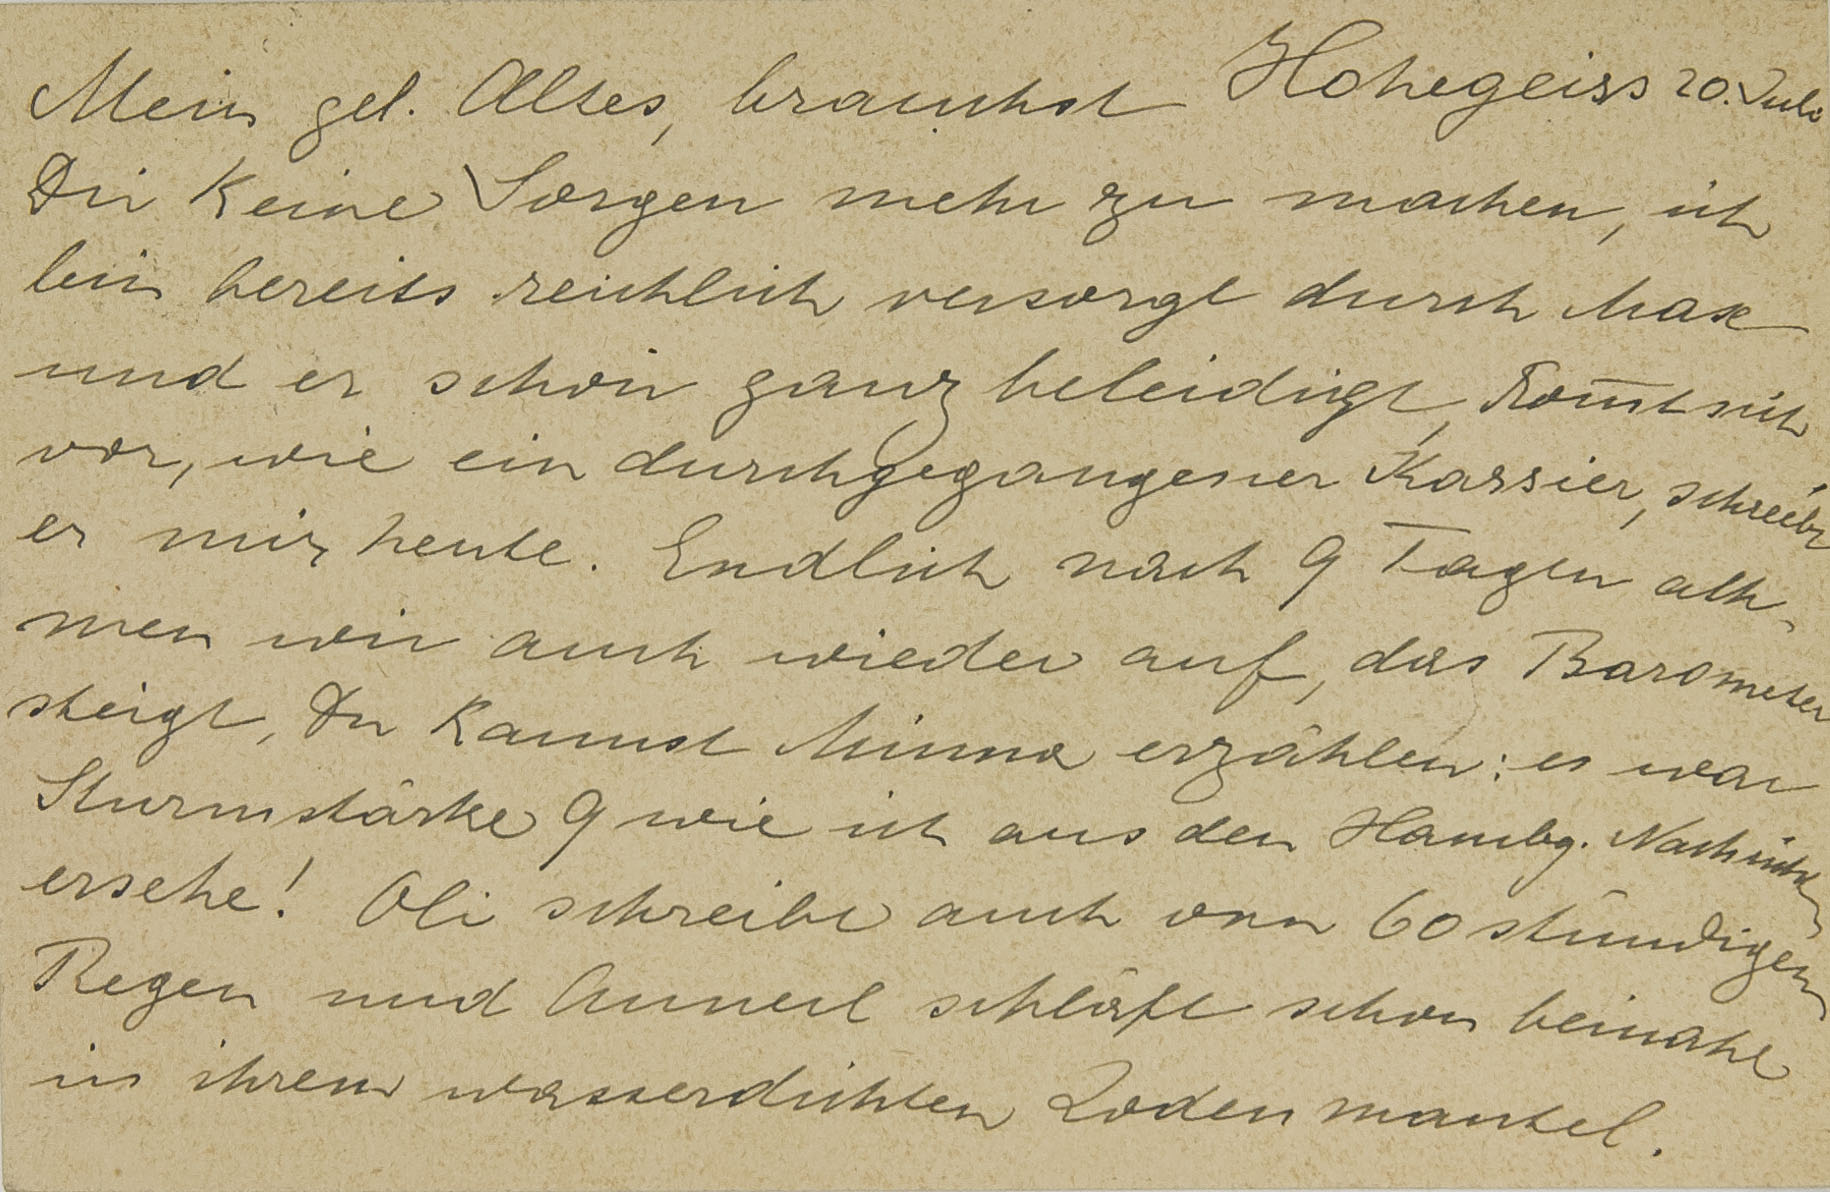 Mein gel. Altes, brauchst Hohegeiss 20. Juli
Dir keine Sorgen mehr zu machen, ich
bin bereits reichlich versorgt durch Max
und er schon ganz beleidigt, kom̅t sich
vor, wie ein durchgegangener Kassier, schreibt
er mir heute. Endlich nach 9 Tagen ath-
men wir auch wieder auf, das Barometer
steigt, Du kannst Minna erzählen: es war
Sturmstärke 9 wie ich aus den Hambg. Nachrichten
ersehe! Oli schreibt auch von 60 stündigen
Regen und Annerl schläft schon beinahe
in ihrem wasserdichten Lodenmantel.